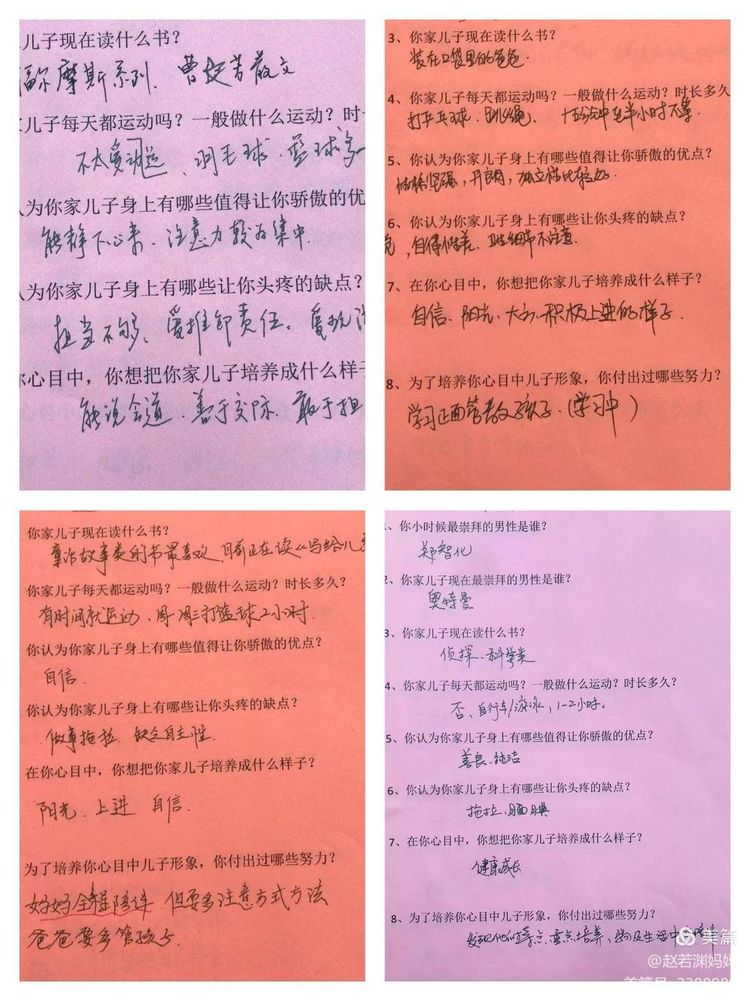 儿子现在读什么书？
摩斯系列、曹文芳散文
儿子每天都运动吗？一般做什么运动？时
不太爱、羽毛球、篮球
认为你家儿子身上有哪些值得让你骄傲的优
能静下心来、注意力较为集中
认为你家儿子身上有哪些让你头疼的缺点？
担当不够、爱推卸责任、爱玩
你心目中，你想把你家儿子培养成什么样子
能说会道、善于交际、敢于担
3、你家儿子现在读什么书？
装在口袋里的爸爸
4、你家儿子每天都运动吗？一般做什么运动？时长多久
打乒乓球、跳绳、十分钟至半小时不等
5、你认为你家儿子身上有哪些值得让你骄傲的优点？
性格坚强，开朗，独立性比较好
6、你认为你家儿子身上有哪些让你头疼的缺点？
，自律性差、细节不注意
7、在你心目中，你想把你家儿子培养成什么样子？
自信、阳光、大方、积极上进的样子
8、为了培养你心目中儿子形象，你付出过哪些努力？
学习正面管教孩子（学习中）
你家儿子现在读什么书？
故事类的书最喜欢，目前正在读《写给儿
你家儿子每天都运动吗？一般做什么运动？时长多久？
有时间就运动，周打篮球2小时
你认为你家儿子身上有哪些值得让你骄傲的优点？
自信
你认为你家儿子身上有哪些让你头疼的缺点？
做事拖拉、缺乏自主性
在你心目中，你想把你家儿子培养成什么样子？
阳光、上进 自信
为了培养你心目中儿子形象，你付出过哪些努力？
好好全程陪伴 但要多注意方式方法
爸爸要多管孩子
、你小时候最崇拜的男性是谁？
郑智化
2、你家儿子现在最崇拜的男性是谁？
奥特曼
3、你家儿子现在读什么书？
侦探、科学类
4、你家儿子每天都运动吗？一般做什么运动？时长多久？
否、自行车/游泳，1-2小时。
5、你认为你家儿子身上有哪些值得让你骄傲的优点？
善良、纯洁
6、你认为你家儿子身上有哪些让你头疼的缺点？
拖拉、腼腆
7、在你心目中，你想把你家儿子培养成什么样子？
健康成长
8、为了培养你心目中儿子形象，你付出过哪些努力？
发现他的优点、重点培养、
美篇
@赵若渊妈妈